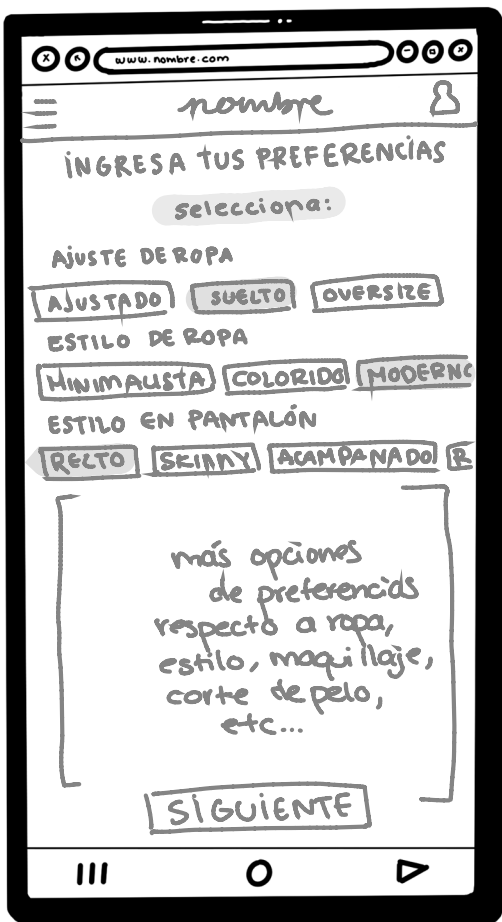 www.nombre.com
nombre
INGRESA TUS PREFERENCIAS
selecciona:
AJUSTE DE ROPA
AJUSTADO SUELTO OVERSIZE
ESTILO DE ROPA
MINIMALISTA COLORIDO MODERNO
ESTILO EN PANTALÓN
RECTO SKINNY ACAMPANADO R
más opciones
de preferencias
respecto a ropa,
estilo, maquillaje,
corte de pelo,
etc...
SIGUIENTE